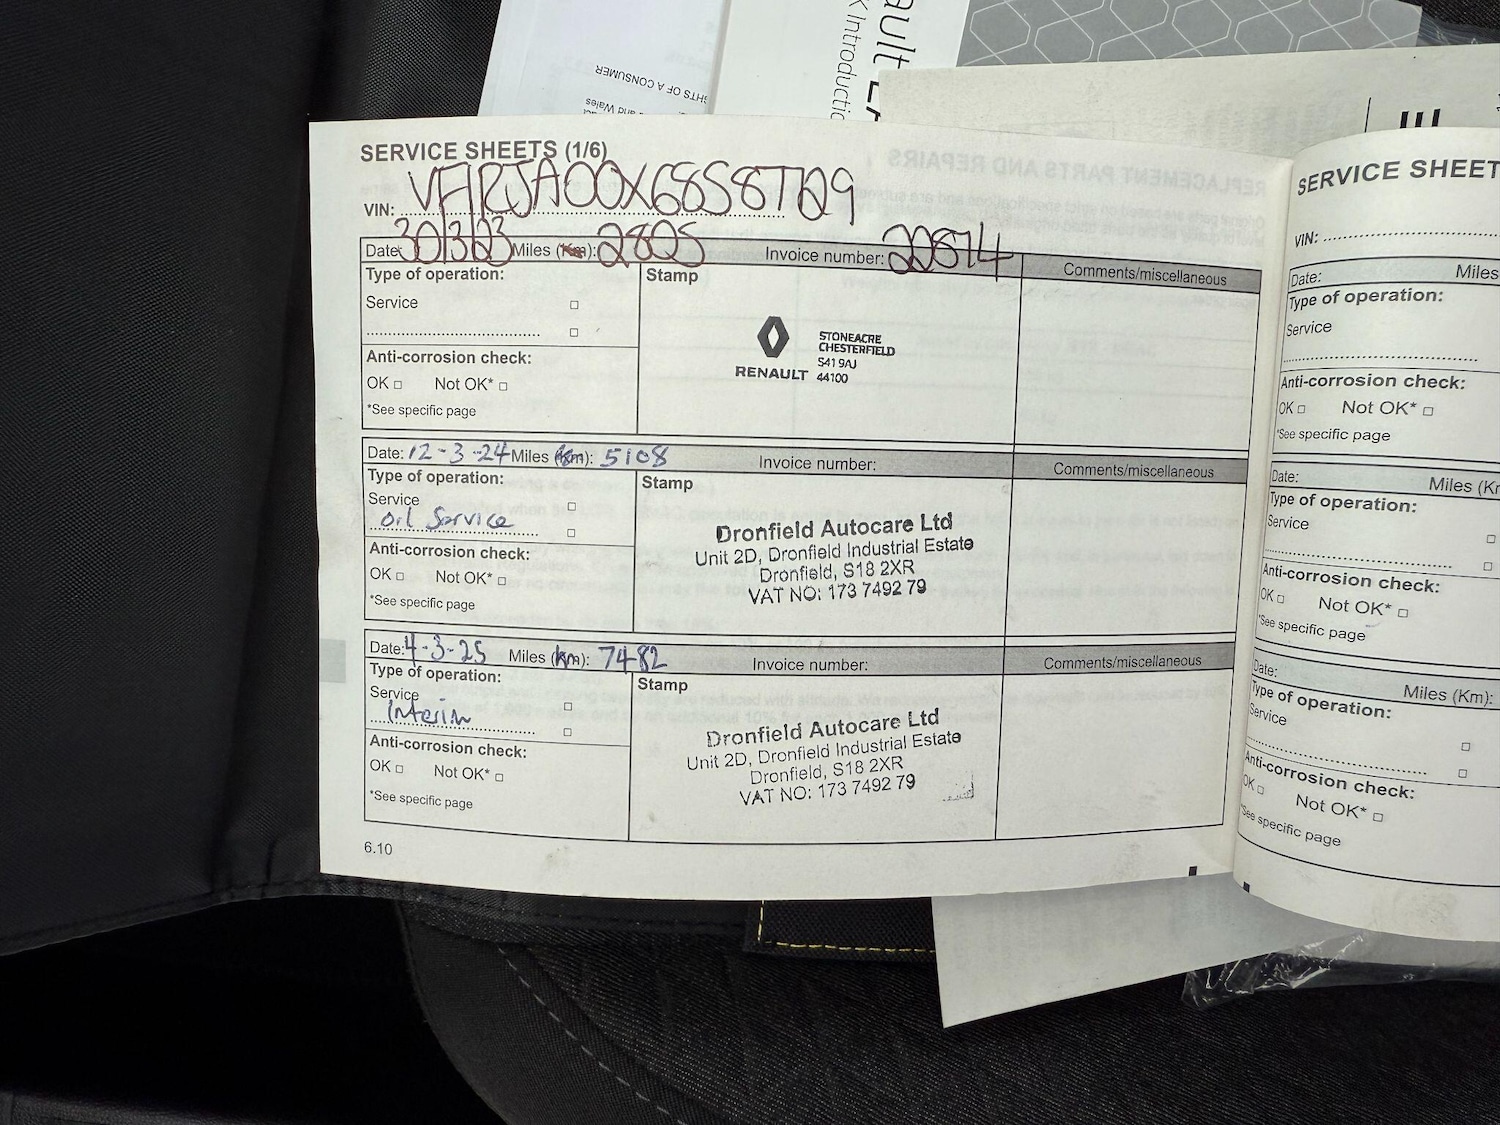 HTS OF A CONSUMER
and Wales
ault
Introductio
SERVICE SHEETS (1/6)
VIN: VF1RJA00X68S8T129
Date: 30/3/23 Miles (Km): 2805 Invoice number: 22874 Comments/miscellaneous
Type of operation: Stamp
Service □
□
Anti-corrosion check:
OK □ Not OK* □
*See specific page
RENAULT
STONEACRE
CHESTERFIELD
S41 9AJ
44100
Date: 12-3-24 Miles (Km): 5108 Invoice number: Comments/miscellaneous
Type of operation: Stamp
Service □
Oil Service □
Anti-corrosion check:
OK □ Not OK* □
*See specific page
Dronfield Autocare Ltd
Unit 2D, Dronfield Industrial Estate
Dronfield, S18 2XR
VAT NO: 173 7492 79
Date: 4-3-25 Miles (Km): 7482 Invoice number: Comments/miscellaneous
Type of operation: Stamp
Service □
Interim □
Anti-corrosion check:
OK □ Not OK* □
*See specific page
Dronfield Autocare Ltd
Unit 2D, Dronfield Industrial Estate
Dronfield, S18 2XR
VAT NO: 173 7492 79
6.10
REPLACEMENT PARTS AND REPAIRS
SERVICE SHEET
VIN:
Date: Miles
Type of operation:
Service
Anti-corrosion check:
OK □ Not OK* □
*See specific page
Date: Miles (Kr
Type of operation:
Service □
□
Anti-corrosion check:
OK □ Not OK* □
*See specific page
Date: Miles (Km):
Type of operation:
Service □
□
Anti-corrosion check:
OK □ Not OK* □
*See specific page